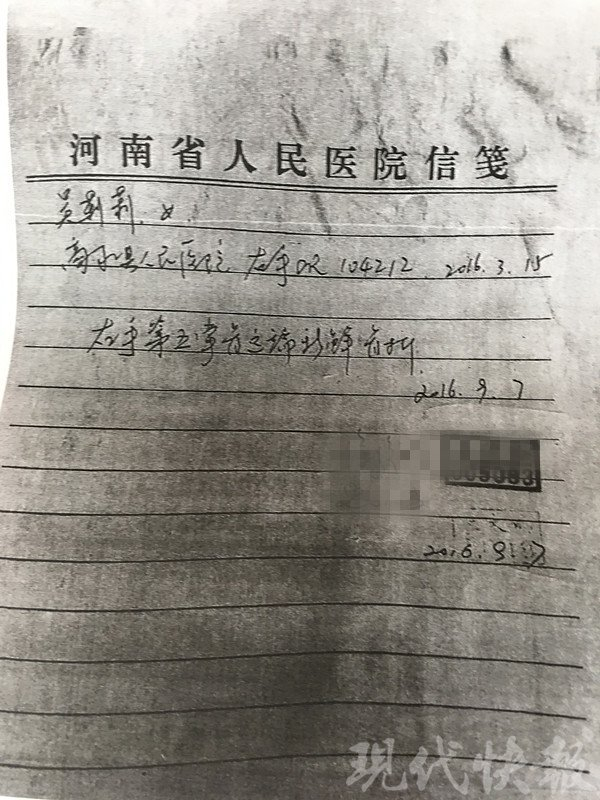 河南省人民医院信笺
莉、女
商水县人民医院 左手DR 104212. 2016.3.15
左手第五掌骨远端新鲜骨折
2016.9.7
2016.9.7
现代快报